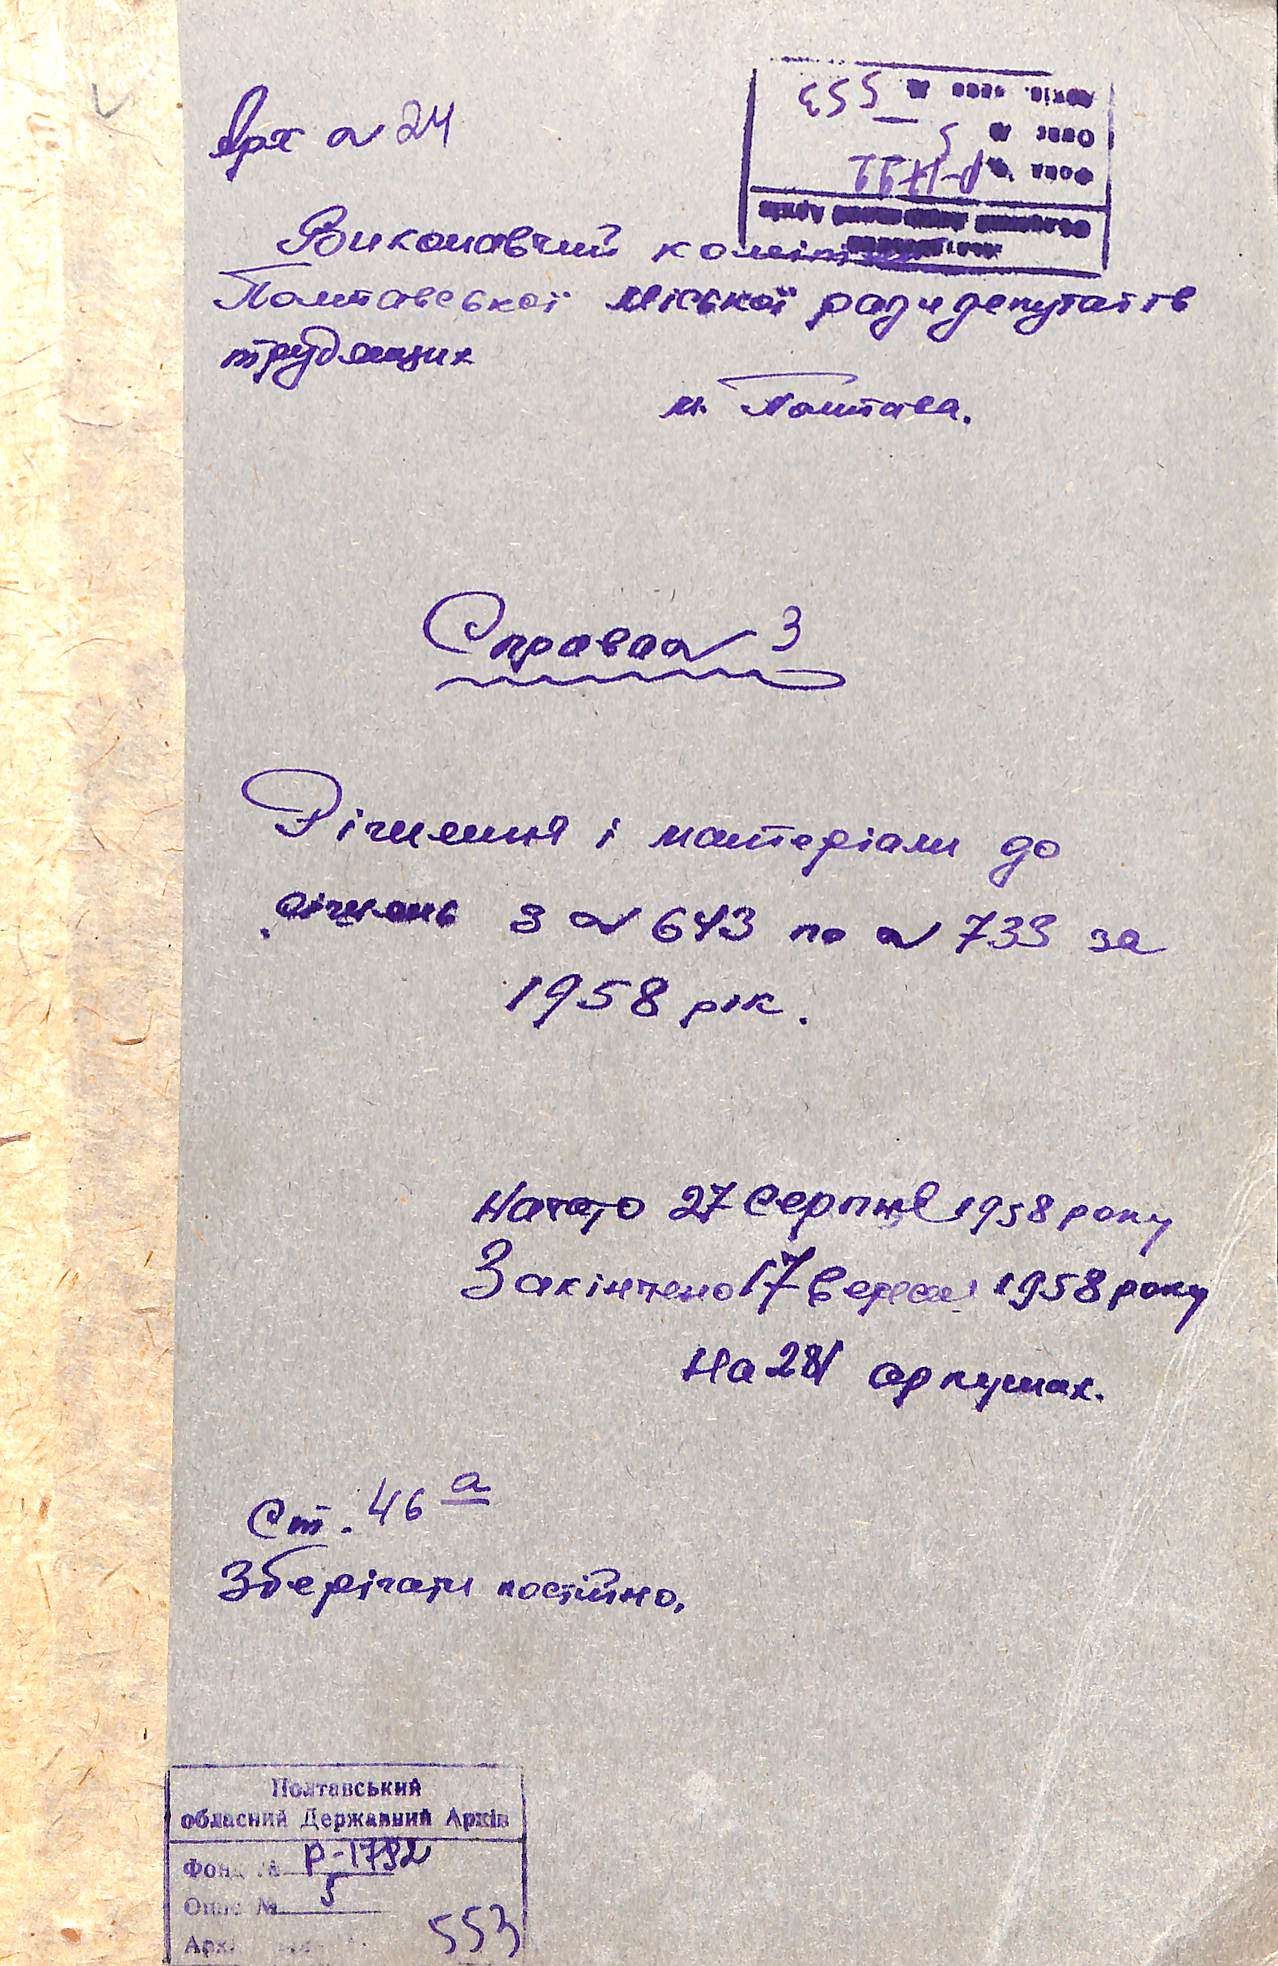 Арх № 24
Виконавчий комітет
Полтавської міської ради депутатів
трудящих
м. Полтава.
Справа № 3
Рішення і матеріали до
рішень з № 643 по № 733 за
1958 рік.
Начато 27 Серпня 1958 року
Закінчено 17 Вересня 1958 року
На 281 аркушах.
Ст. 46 а
Зберігати постійно.
Полтавський
обласний Державний Архів
Фонд № Р-1792
Опис № 5
Арх. 553